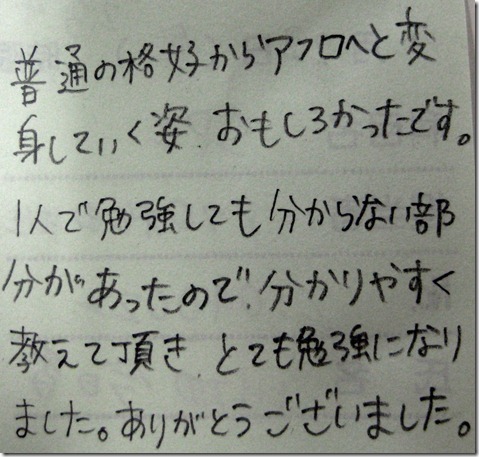 普通の格好からアフロへと変
身していく姿、おもしろかったです。
1人で勉強しても分からない部
分があったので、分かりやすく
教えて頂き、とても勉強になり
ました。ありがとうございました。